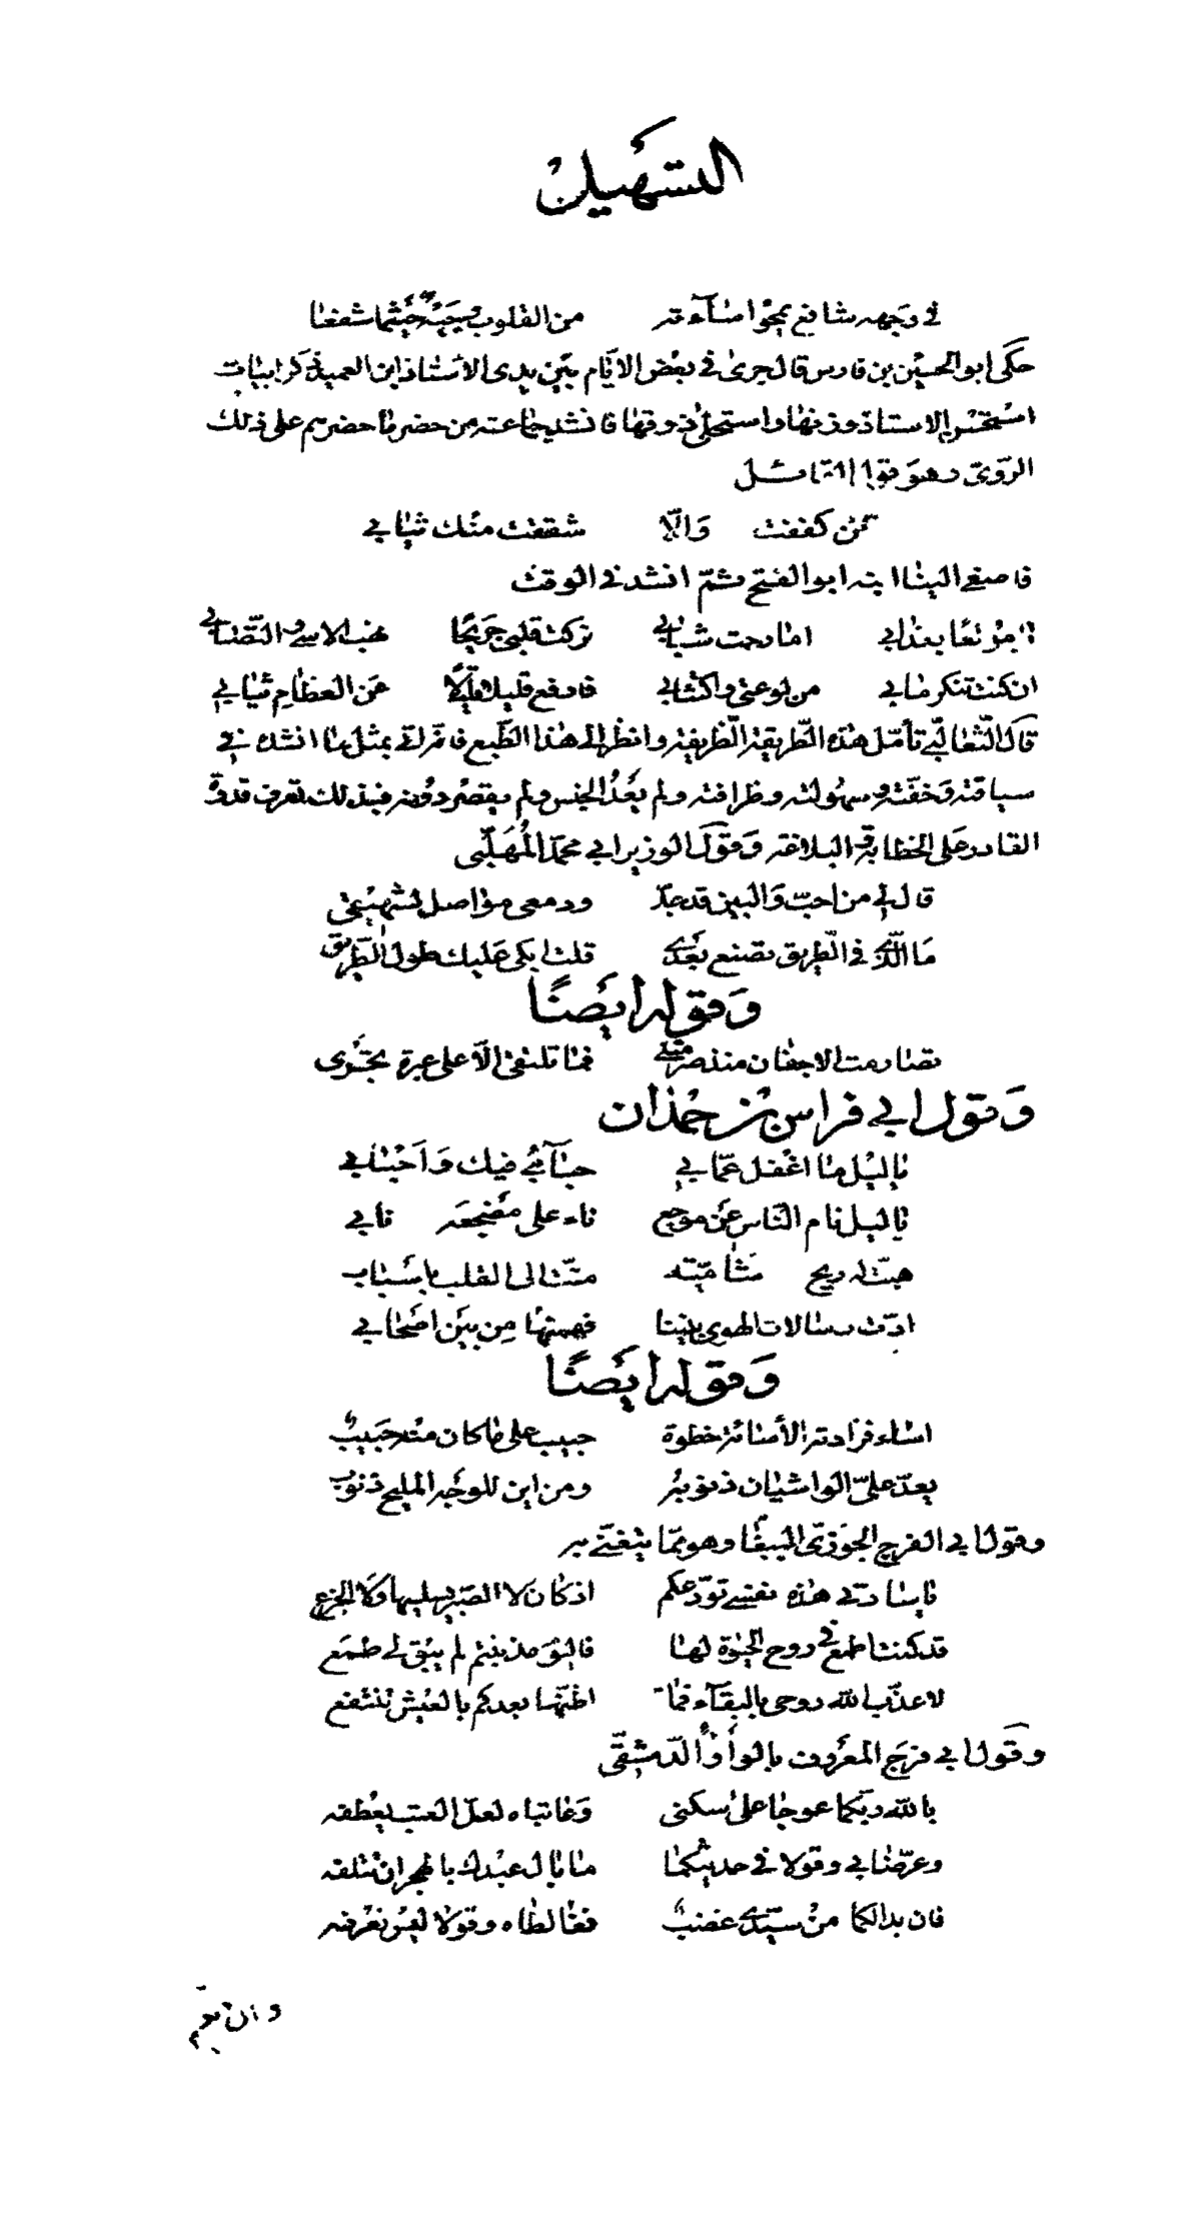 التسهيل
في وجهه شافع يمحو اساءته من القلوب وجيه حيثما شفعا
حكى ابو الحسين بن فارس قال جرى في بعض الايام بين يدى الاستاذ ابن العميد ذكر ابيات
استحسن الاستاذ وزنها واستحلى ذوقها فانشد جماعة من حضر ما حضرهم على ذلك
الروى وهو قول القائل
لئن كففت والّا شققت منك ثيابي
فاصغى الينا ابنه ابو الفتح ثمّ انشد في الوقت
يا مولعا بعذابي اما رحمت شبابي تركت قلبي جريحًا نهب الاسى والتصابي
ان كنت تنكر ما بي من لوعتي واكتئابي فارفع قليلا قليلًا عن العظام ثيابي
قال الثعالبي تأمّل هذه الطّريقة الظّريفة وانظر الى هذا الطّبع فانّه اتى بمثل ما انشد في
سياقته وخفّته وسهولته وظرافته ولم يعدُ الجنس ولم يقصر دونه فبذلك تعرف قدرة
القادر على الخطابة والبلاغة وقول الوزير ابي محمد المُهَلّبي
قال لي من احبّ والبين قد جدّ ودمعى مواصل لشهيقي
ما الّذي في الطريق تصنع بعدي قلت ابكى عليك طول الطّريق
وقوله ايضًا
تصارمت الاجفان منذ صرمتني فما تلتقى الّا على عبرة تجرى
وقول ابي فراس بن حمدان
يا ليل ما اغفل عمّا بي حبائبي فيك واحبابي
يا ليل نام النّاس عن موجع ناء على مضجعه نابي
هبت له ريح شاميّة متّت الى القلب باسباب
ادّت رسالات الهوى بيننا فهمتها من بين اصحابي
وقوله ايضًا
اساء فزادته الأساءة خطوة حبيب على ما كان منه حبيبٌ
يعدّ علىّ الواشيان ذنوبه ومن اين للوجه المليح ذنوب
وقول ابي الفرج الببغا وهو ممّا يتغنّى به
يا سادتي هذه نفسى تودّعكم اذ كان لا الصّبر يسليها ولا الجزع
قد كنت اطمع في روح الحيوة لها فاليوم مذ بنتم لم يبق لي طمع
لا عذّب الله روحى بالبقاء فما اظنّها بعدكم بالعيش تنتفع
وقول ابي فرج المعروف بالوأواء الدّمشقّى
بالله ربّكما عوجا على سكنى وعاتباه لعلّ العتب يعطفه
وعرّضا بي وقولا في حديثكما ما بال عبدك بالهجران تتلفه
فان بدا لكما من سيّدي غضبٌ فغالطاه وقولا ليس نعرفه